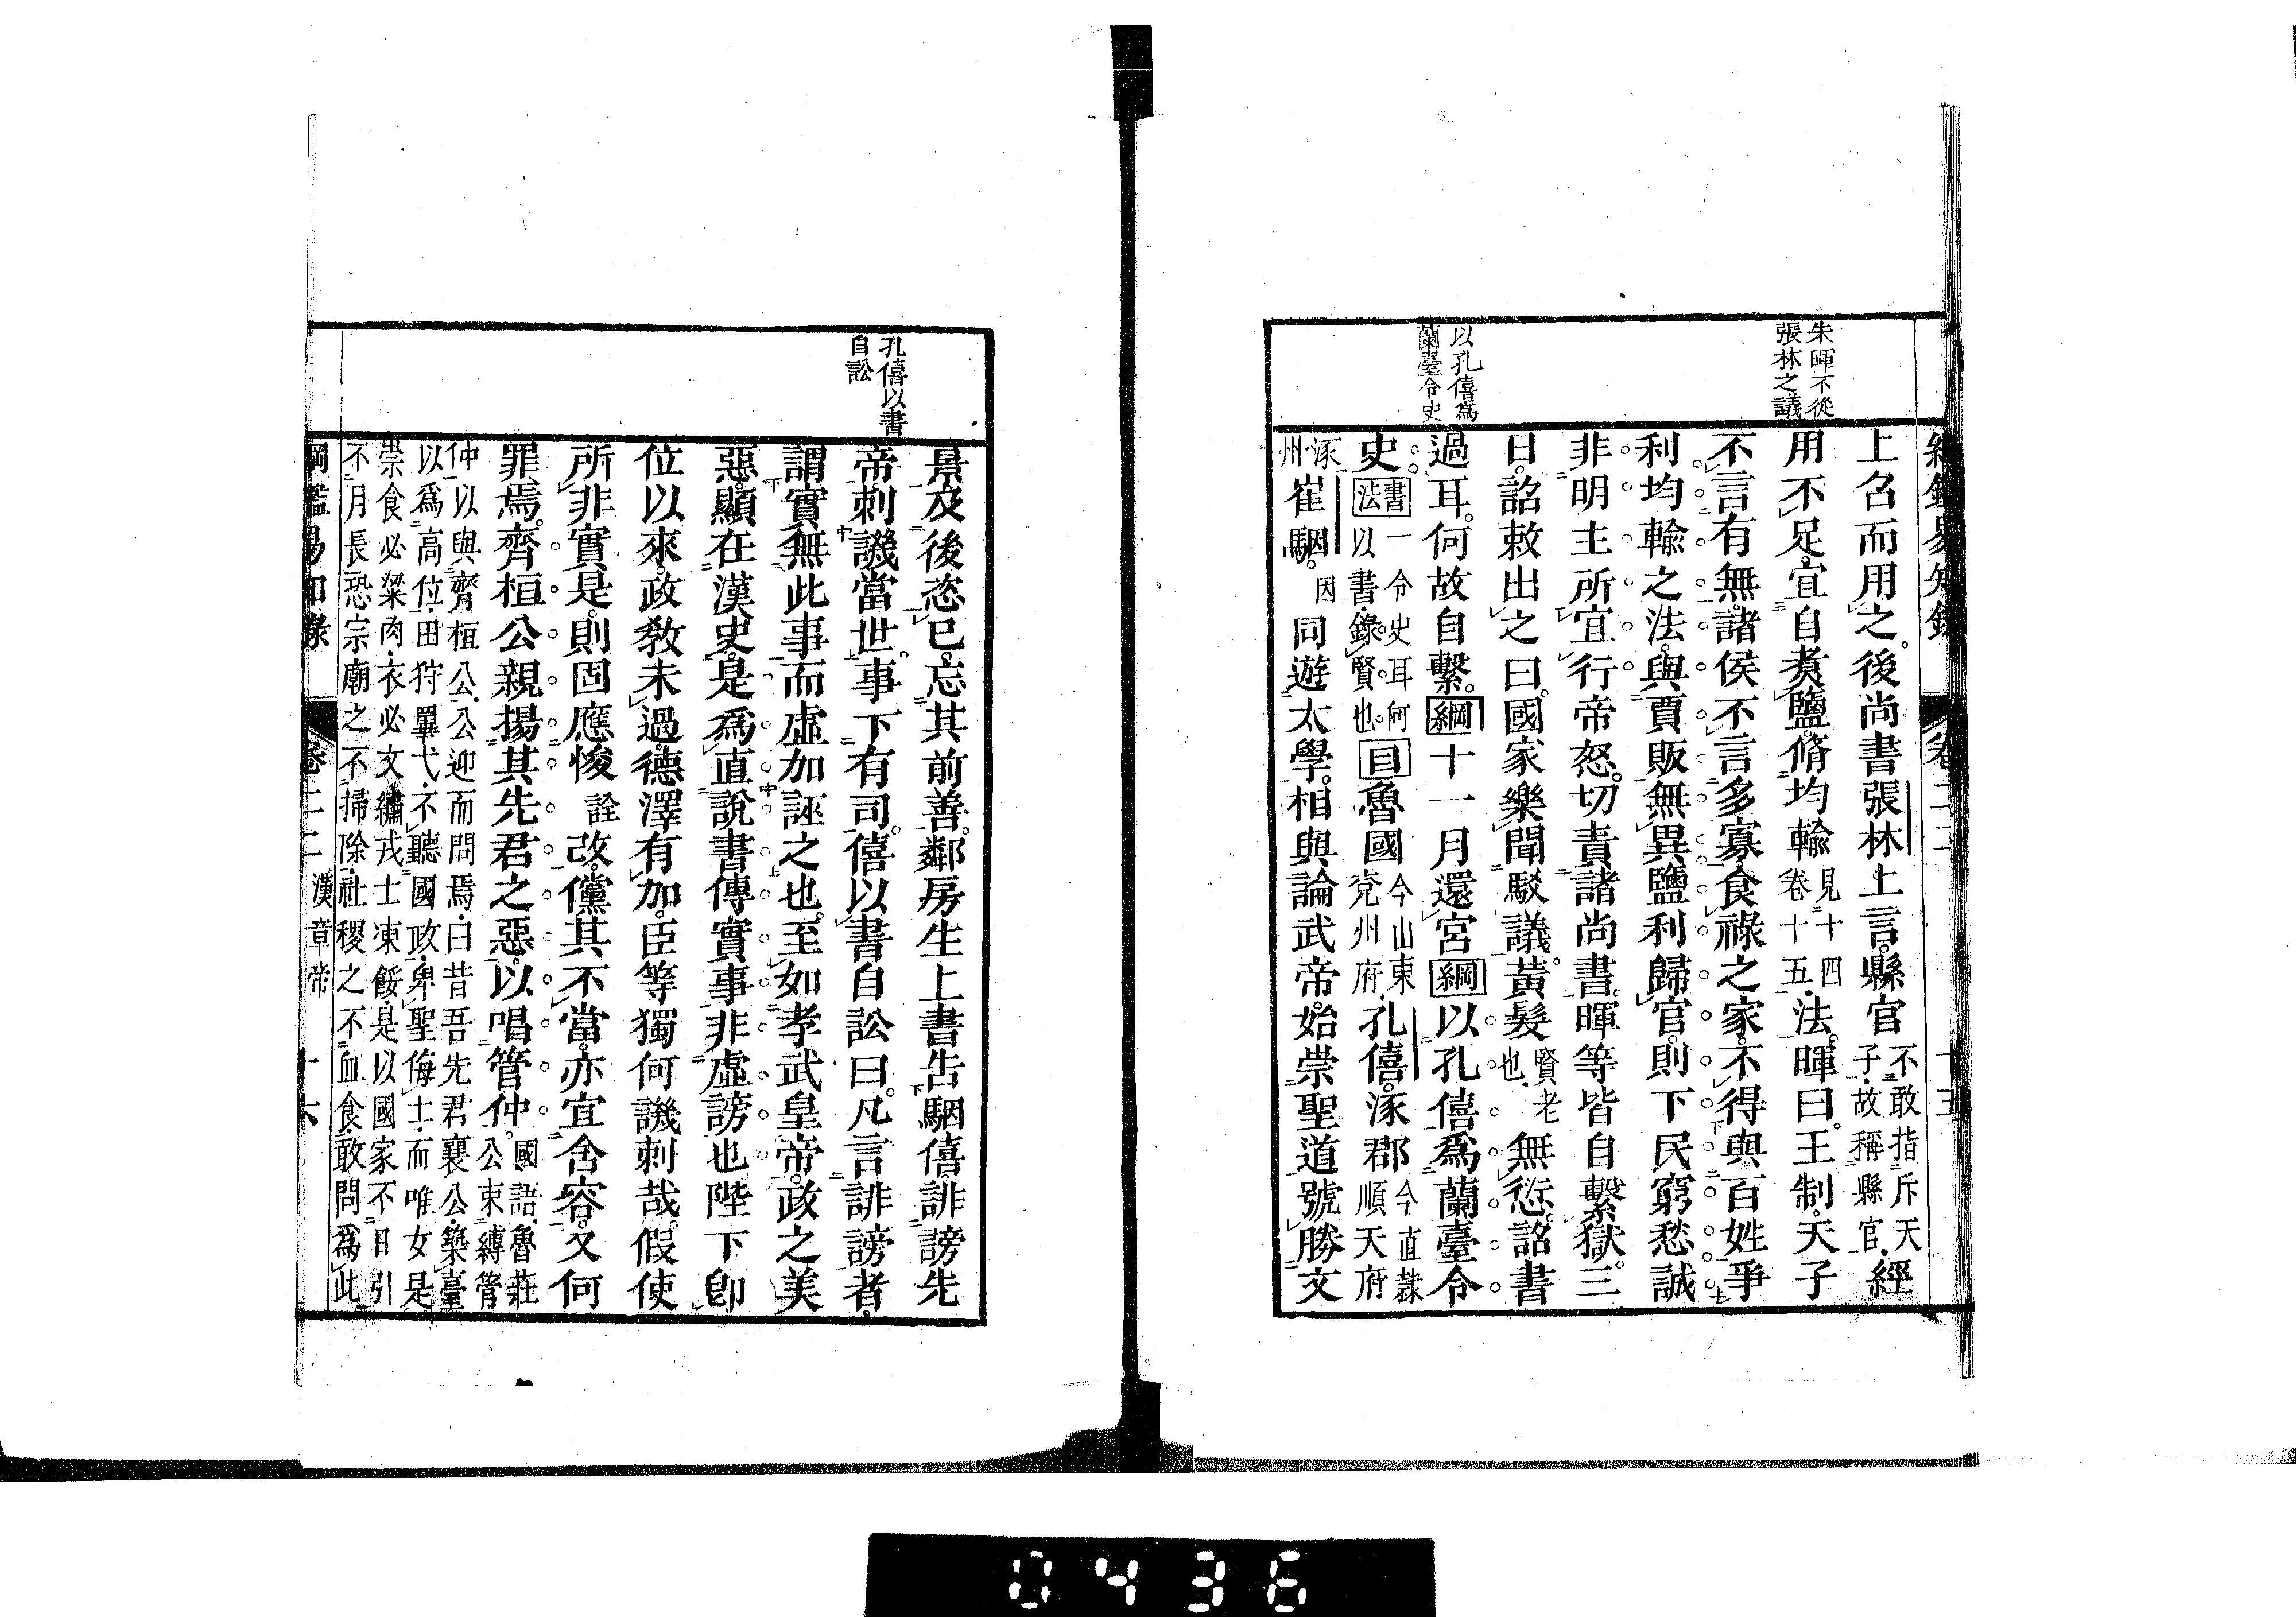 朱暉不從
張林之議
以孔僖爲
蘭臺令史
上召而用之。後尚書張林上言。縣官不敢指斥天子.故稱縣官.經
用不足。宜自煑鹽。脩均輸見十四卷十五.法。暉曰。王制。天子
不言有無。諸侯不言多寡。食祿之家。不得與百姓爭
利。均輸之法。與賈販無異。鹽利歸官。則下民窮愁。誠
非明主所宜行。帝怒。切責諸尚書。暉等皆自繫獄。三
日。詔敕出之曰。國家樂聞駁議。黃髮賢老也.無愆。詔書
過耳。何故自繫。綱十一月還宮綱以孔僖爲蘭臺令
史。書法一令史耳何以書.錄賢也目魯國今山東兗州府.孔僖。涿郡今直隸順天府
涿州崔駰。因同遊太學。相與論武帝。始崇聖道。號勝文
卷二十二
十五
孔僖以書
自訟
景。及後恣已。忘其前善。鄰房生上書告駰僖誹謗先
帝。刺譏當世。事下有司。僖以書自訟曰。凡言誹謗者。
謂實無此事而虛加誣之也。至如孝武皇帝。政之美
惡。顯在漢史。是爲直說書傳實事。非虛謗也。陛下卽
位以來。政敎未過。德澤有加。臣等獨何譏刺哉。假使
所非實是。則固應悛詮改。儻其不當。亦宜含容。又何
罪焉。齊桓公親揚其先君之惡。以唱管仲。國語.魯莊公束縛管
仲以與齊桓公.公迎而問焉.曰昔吾先君襄公.築臺
以爲高位.田狩罼弋.不聽國政.卑聖侮士.而唯女是
崇食必粱肉.衣必文繡.戎士凍餒.是以國家不日引
不月長恐宗廟之不掃除.社稷之不血食.敢問爲此
綱鑑易知錄 卷二十二 漢章帝 十六
0436